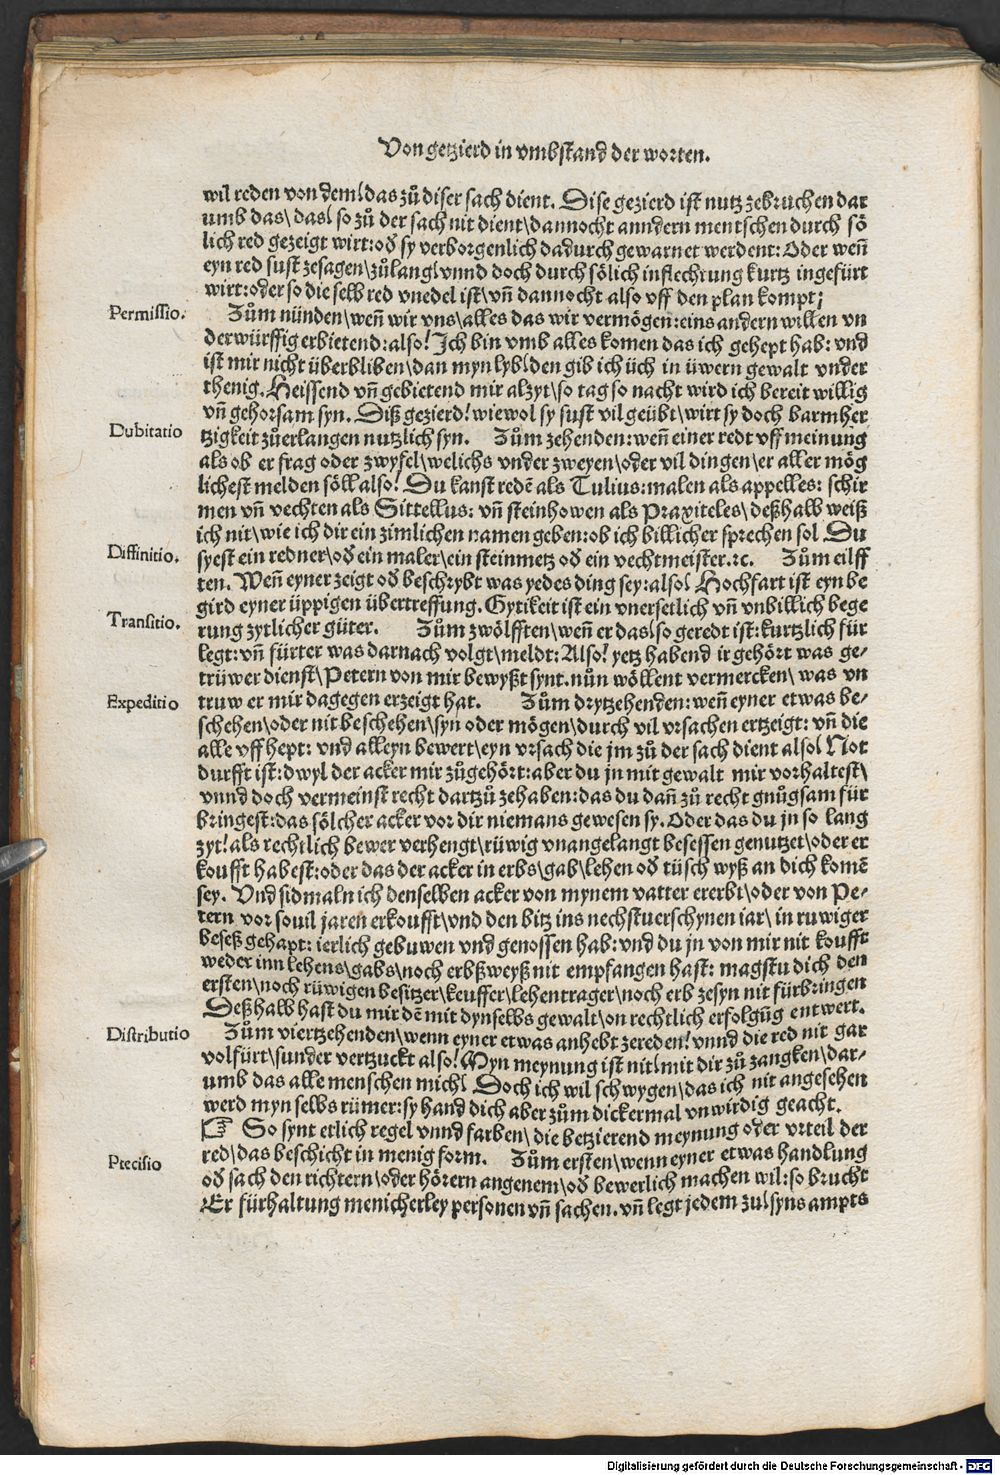 Von getzierd in vmbstand der worten.
wil reden von dem/ das zů diser sach dient. Dise gezierd ist nutz zebruchen dar
umb das\ das/ so zů der sach nit dient\ dannocht anndern mentschen durch sö
lich red gezeigt wirt: od̕ sy verborgenlich dadurch gewarnet werdent: Oder weñ
eyn red sust zesagen\ zůlang/ vnnd doch durch sölich inflechtung kurtz ingefürt
wirt: oder so die selb red vnedel ist\ vñ dannocht also vff den plan kompt;
Permissio.
Zům nünden\ weñ wir vns\ alles das wir vermögen: eins andern willen vn
derwürffig erbietend: also! Ich bin vmb alles komen das ich gehept hab: vnd
ist mir nicht überbliben\ dan myn lyb/ den gib ich üch in üwern gewalt vnder
thenig. Heissend vñ gebietend mir alzyt\ so tag so nacht wird ich bereit willig
vñ gehorsam syn. Diß gezierd! wiewol sy sust vil geübt\ wirt sy doch barmher
Dubitatio
tzigkeit zůerlangen nutzlich syn. Zům zehenden: weñ einer redt vff meinung
als ob er frag oder zwyfel\ welichs vnder zweyen\ oder vil dingen\ er aller mög
lichest melden söll also! Du kanst redē als Tulius: malen als appelles: schir
men vñ vechten als Sittellus: vñ steinhowen als Praxiteles\ deßhalb weiß
ich nit\ wie ich dir ein zimlichen namen geben: ob ich billicher sprechen sol Du
Diffinitio.
syest ein redner\ od̕ ein maler\ ein steinmetz od̕ ein vechtmeister. ꝛc. Zům eilff
ten. Weñ eyner zeigt od̕ beschrybt was yedes ding sey: also/ Hochfart ist eyn be
gird eyner üppigen übertreffung. Gytikeit ist ein vnersetlich vñ vnbillich bege
Transitio.
rung zytlicher güter. Zům zwölfften\ weñ er das/ so geredt ist: kurtzlich für
legt: vñ fürter was darnach volgt\ meldt: Also! yetz habend ir gehört was ge-
trüwer dienst\ Petern von mir bewyßt synt. nůn wöllent vermercken\ was vn
Expeditio
truw er mir dagegen erzeigt hat. Zům drytzehenden: weñ eyner etwas be-
schehen\ oder nit beschehen\ syn oder mögen\ durch vil vrsachen ertzeigt: vñ die
alle vffhept: vnd alleyn bewert\ eyn vrsach die jm zů der sach dient also/ Not
durfft ist: dwyl der acker mir zůgehört: aber du jn mit gewalt mir vorhaltest\
vnnd doch vermeinst recht dartzů zehaben: das du dañ zů recht gnůgsam für
bringest: das sölcher acker vor dir niemans gewesen sy. Oder das du jn so lang
zyt! als rechtlich bewer verhengt\ rüwig vnangelangt besessen genutzet\ oder er
koufft habest: oder das der acker in erbs\ gab\ lehen od̕ tüsch wyß an dich komē
sey. Vnd sidmaln ich denselben acker von mynem vatter ererbt\ oder von Pe-
tern vor souil jaren erkoufft\ vnd den bitz ins nechstuerschynen iar\ in ruwiger
beseß gehapt: ierlich gebuwen vnd genossen hab: vnd du jn von mir nit koufft
weder inn lehens\ gabs\ noch erbßweyß nit empfangen hast: magstu dich den
ersten\ noch rüwigen besitzer\ keuffer\ lehentrager\ noch erb zesyn nit fürbringen
Deßhalb hast du mir dē mit dynselbs gewalt\ on rechtlich erfolgūg entwert.
Distributio
Zům viertzehenden\ wenn eyner etwas anhebt zereden! vnnd die red nit gar
volfürt\ sunder vertzuckt also! Myn meynung ist nit/ mit dir zů zangken\ dar-
umb das alle menschen mich/ Doch ich wil schwygen\ das ich nit angesehen
werd myn selbs rümer: sy hand dich aber zům dickermal vnwirdig geacht.
☞ So synt etlich regel vnnd farben\ die betzierend meynung oder vrteil der
Precisio
red\ das beschicht in menig form. Zům ersten\ wenn eyner etwas handlung
od̕ sach den richtern\ oder hörern angenem\ od̕ bewerlich machen wil: so brucht
Er fürhaltung menicherley personen vñ sachen. vñ legt jedem zu/ syns ampts
Digitalisierung gefördert durch die Deutsche Forschungsgemeinschaft - DFG